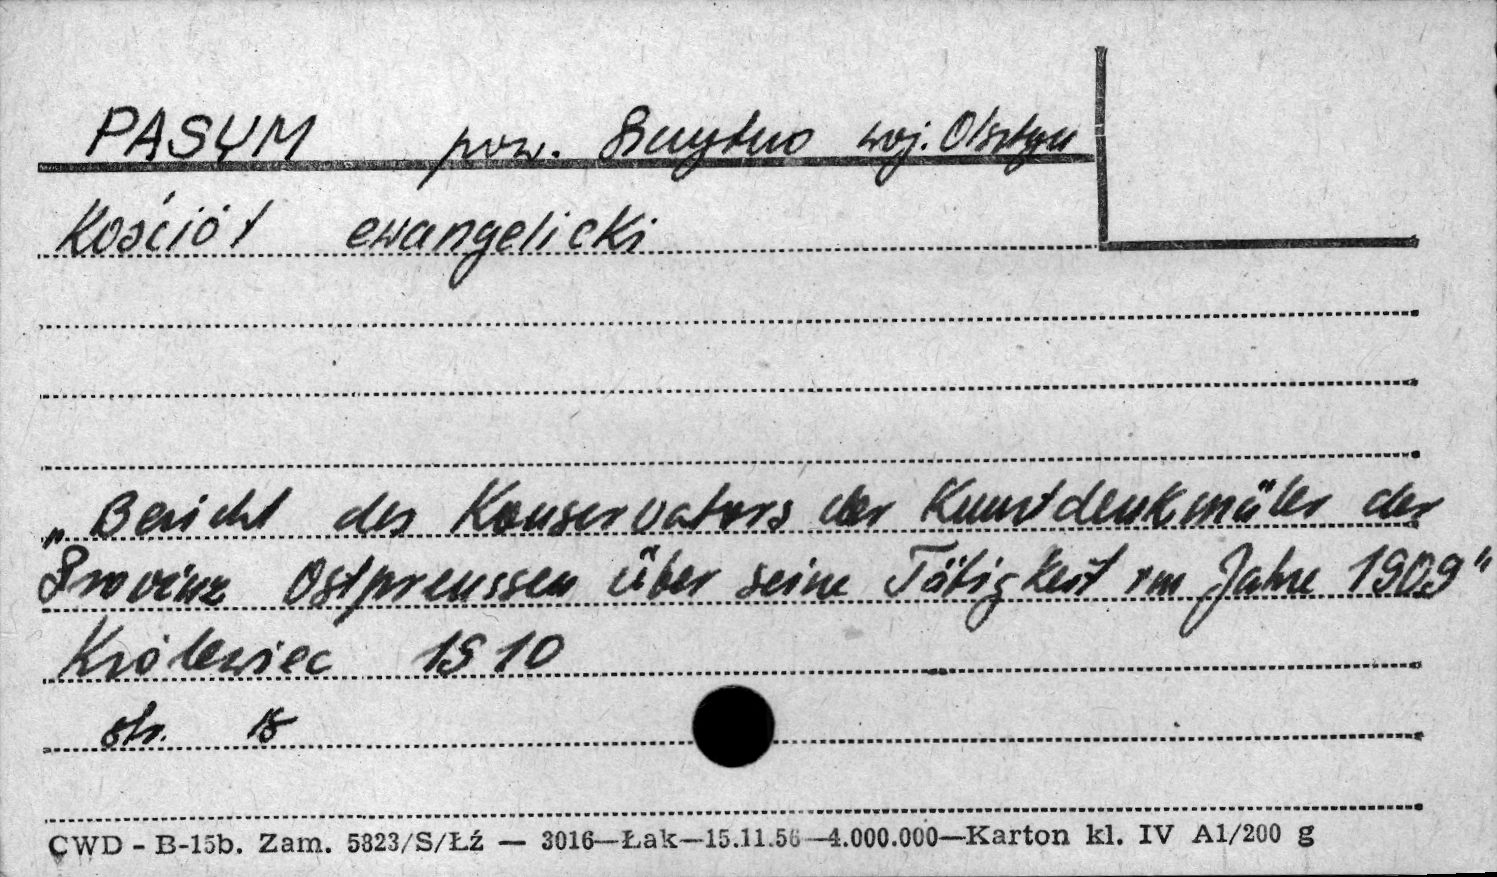 PASYM pow. Szczytno woj. Olsztyn
Kościół ewangelicki
„Bericht des Konservators der Kunstdenkmäler der
Provinz Ostpreussen über seine Tätigkeit im Jahre 1909"
Królewiec 1910
str.
CWD - B-15b. Zam. 5823/S/Łź — 3016—Łak—15.11.56—4.000.000—Karton kl. IV A1/200 g